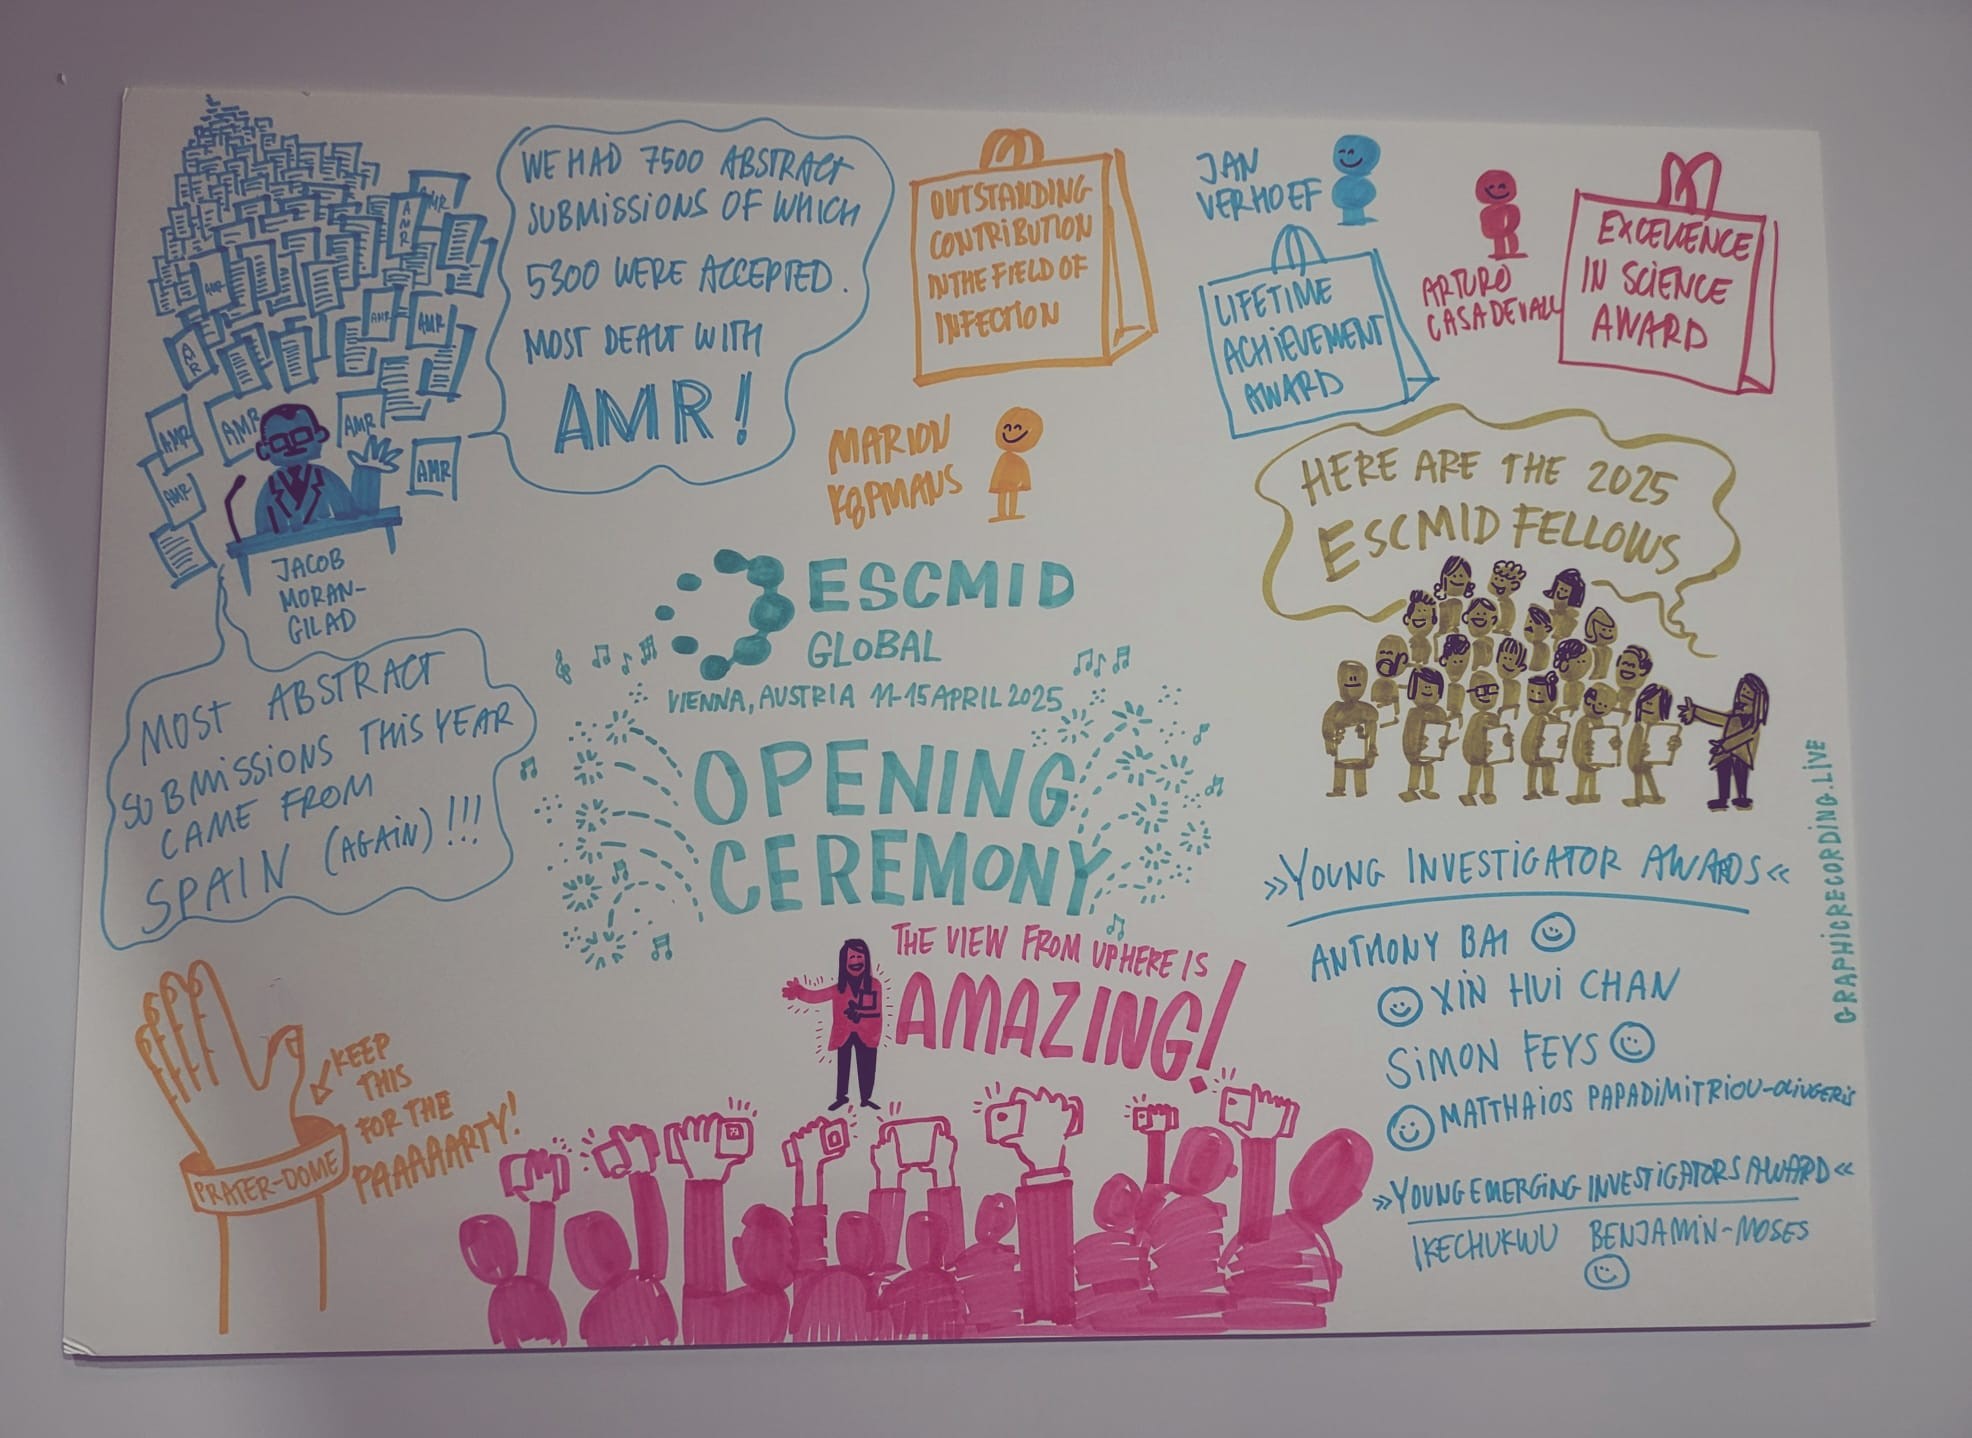 WE HAD 7500 ABSTRACT
SUBMISSIONS OF WHICH
5300 WERE ACCEPTED.
MOST DEALT WITH
AMR!
AMR
AMR
AMR
AMR
AMR
AMR
AMR
AMR
AMR
AMR
AMR
JACOB
MORAN-
GILAD
MOST ABSTRACT
SUBMISSIONS THIS YEAR
CAME FROM
SPAIN (AGAIN)!!!
OUTSTANDING
CONTRIBUTION
IN THE FIELD OF
INFECTION
MARION
KOPMANS
JAN
VERHOEF
LIFETIME
ACHIEVEMENT
AWARD
ARTURO
CASADEVALL
EXCELLENCE
IN SCIENCE
AWARD
HERE ARE THE 2025
ESCMID FELLOWS
ESCMID
GLOBAL
VIENNA, AUSTRIA 11-15 APRIL 2025
OPENING
CEREMONY
THE VIEW FROM UP HERE IS
AMAZING!
KEEP
THIS
FOR THE
PAAAAARTY!
PRATER-DOME
»YOUNG INVESTIGATOR AWARDS«
ANTHONY BAI
XIN HUI CHAN
SIMON FEYS
MATTHAIOS PAPADIMITRIOU-OLIVGERIS
»YOUNG EMERGING INVESTIGATORS AWARD«
IKECHUKWU BENJAMIN-MOSES
GRAPHICRECORDING.LIVE